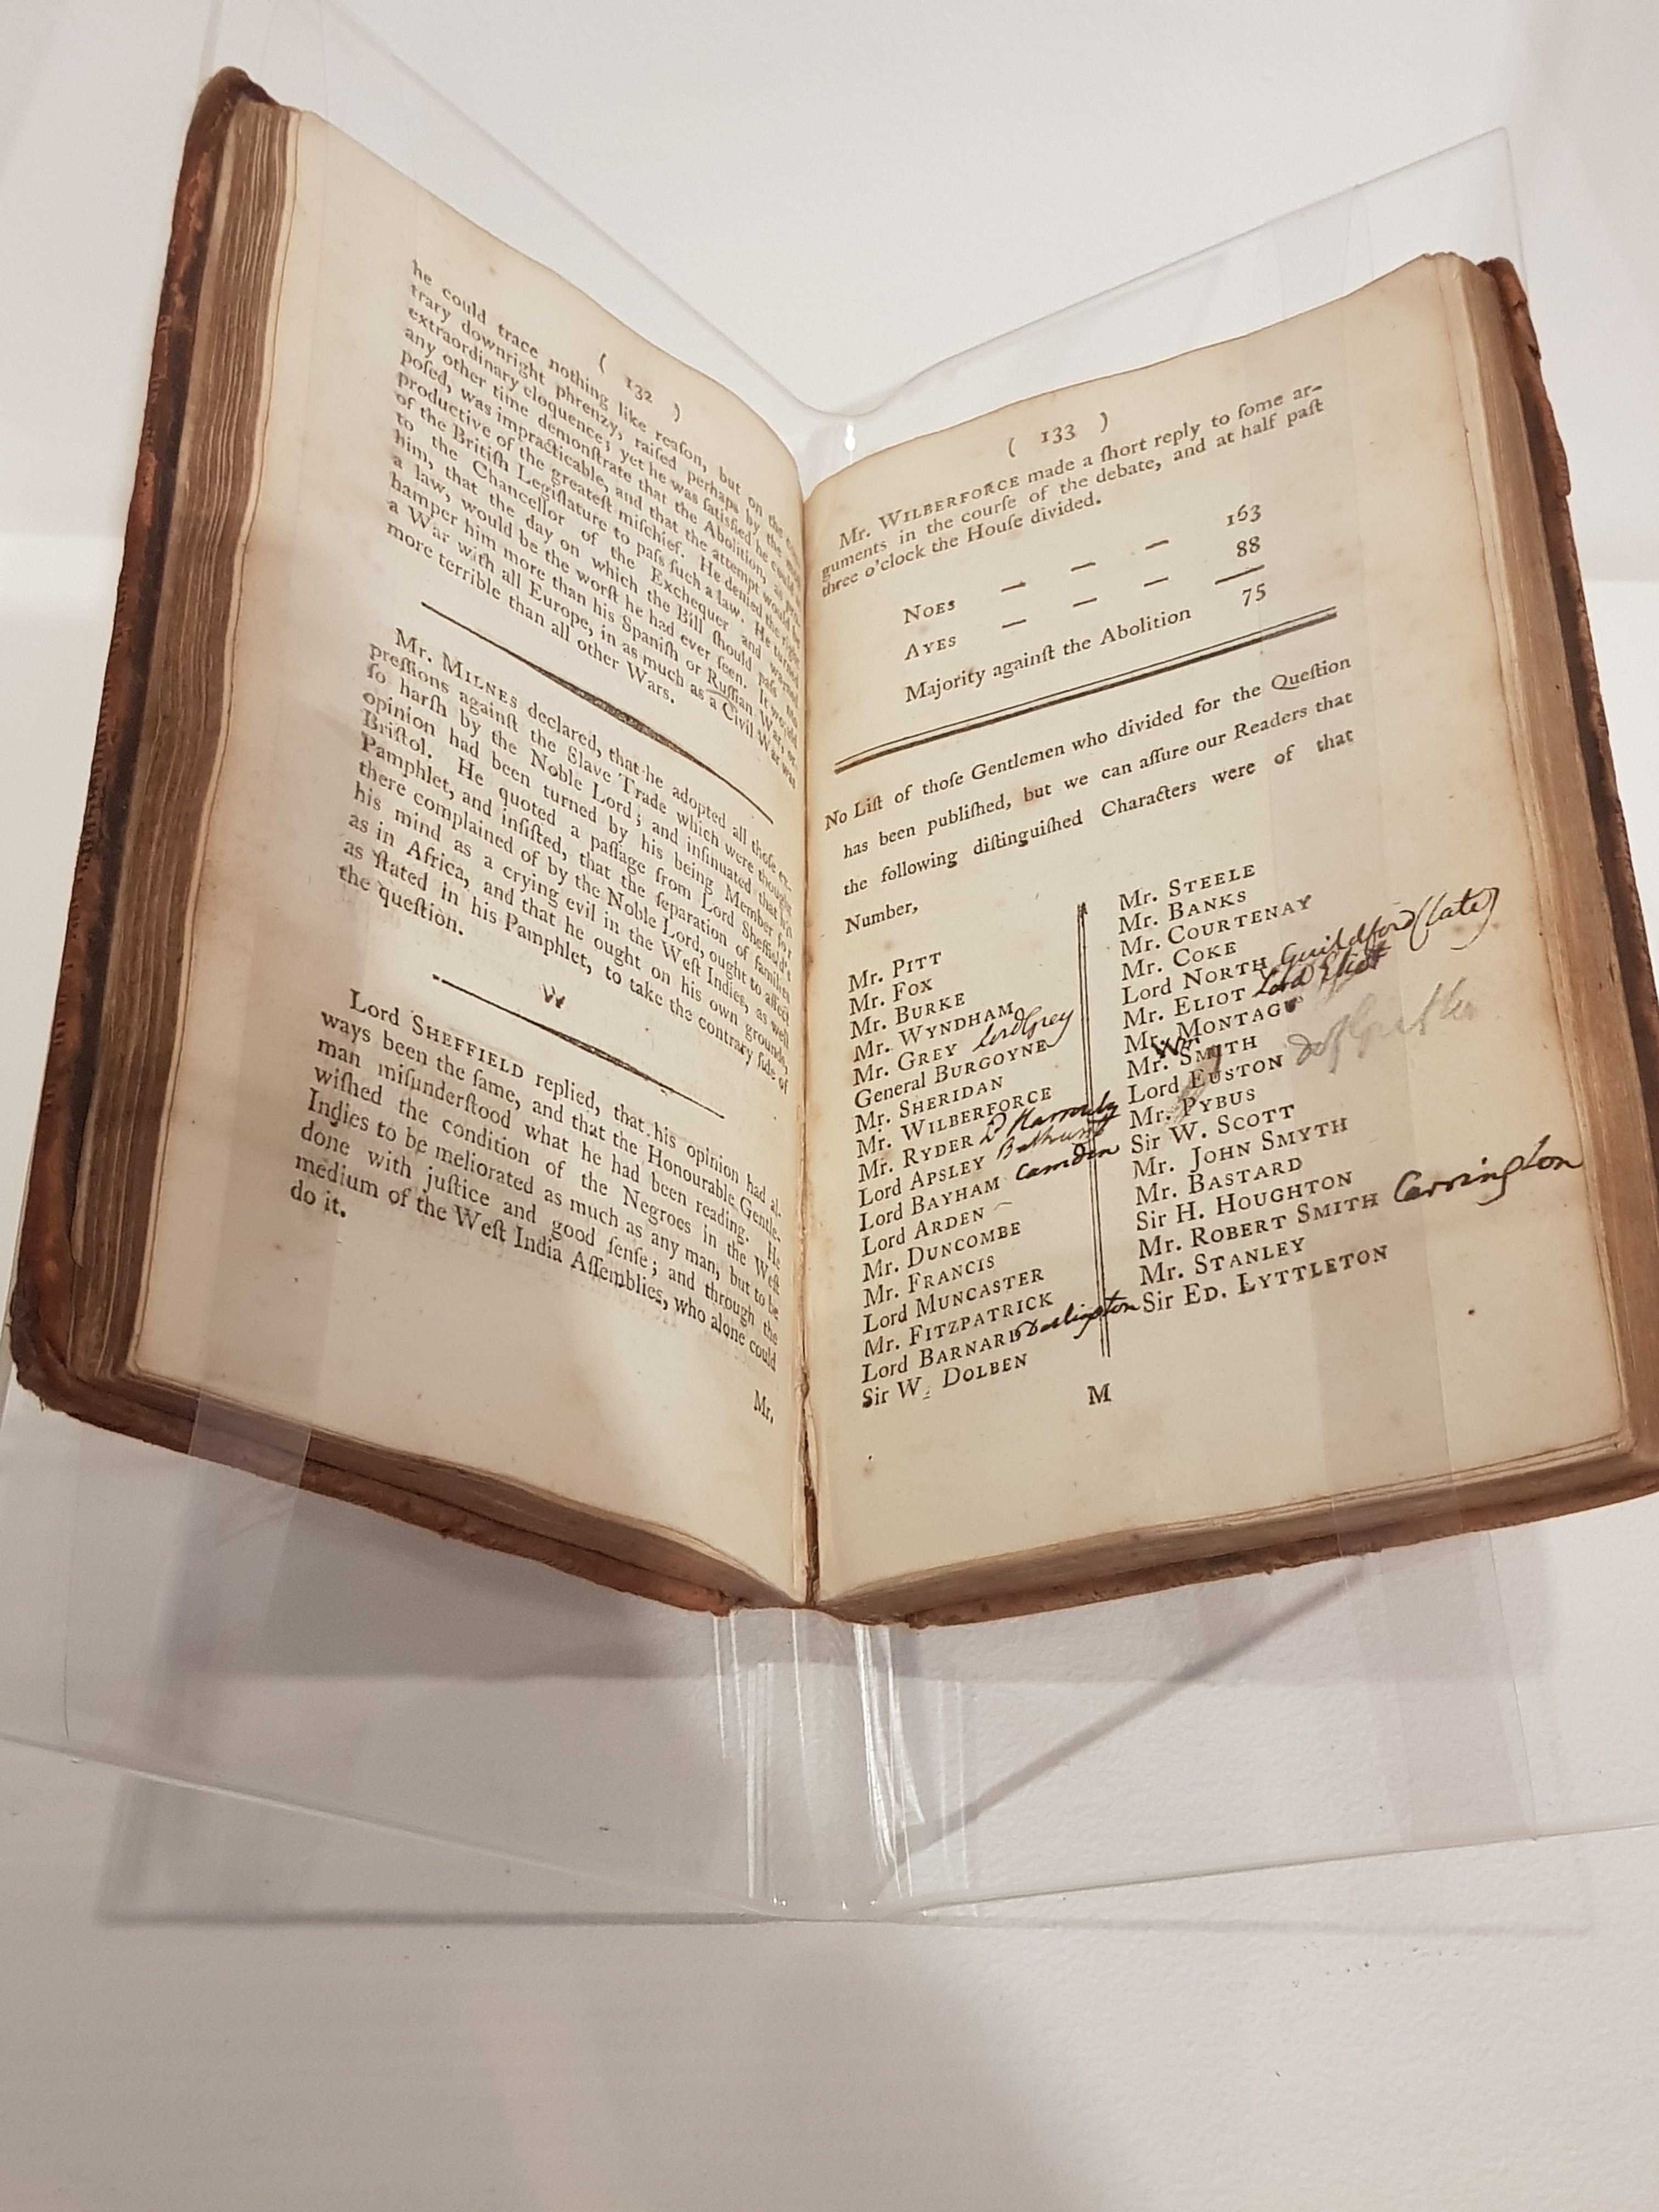 ( 132 )
he could trace nothing like reaſon, but on the con-
trary downright phrenzy, raiſed perhaps by the moſt
extraordinary eloquence; yet he was ſatisfied he could
any other time demonſtrate that the Abolition, as pro-
poſed, was impracticable, and that the attempt would be
productive of the greateſt miſchief. He denied the right
of the Britiſh Legiſlature to paſs ſuch a law. He turned
to the Chancellor of the Exchequer and warned
him, that the day on which the Bill ſhould paſs into
a law, would be the worſt he had ever ſeen. It would
hamper him more than his Spaniſh or Ruſſian War, or
a War with all Europe, in as much as a Civil War was
more terrible than all other Wars.
Mr. MILNES declared, that he adopted all thoſe ex-
preſſions againſt the Slave Trade which were thought
ſo harſh by the Noble Lord; and inſinuated that his
opinion had been turned by his being Member for
Briſtol. He quoted a paſſage from Lord Sheffield's
Pamphlet, and inſiſted, that the ſeparation of families
there complained of by the Noble Lord, ought to affect
his mind as a crying evil in the Weſt Indies, as well
as in Africa, and that he ought on his own grounds,
as ſtated in his Pamphlet, to take the contrary ſide of
the queſtion.
Lord SHEFFIELD replied, that his opinion had al-
ways been the ſame, and that the Honourable Gentle-
man miſunderſtood what he had been reading. He
wiſhed the condition of the Negroes in the Weſt
Indies to be meliorated as much as any man, but to be
done with juſtice and good ſenſe; and through the
medium of the Weſt India Aſſemblies, who alone could
do it.
Mr.
( 133 )
Mr. WILBERFORCE made a ſhort reply to ſome ar-
guments in the courſe of the debate, and at half paſt
three o'clock the Houſe divided.
NOES — — — 163
AYES — — — 88
Majority againſt the Abolition 75
No Liſt of thoſe Gentlemen who divided for the Queſtion
has been publiſhed, but we can aſſure our Readers that
the following diſtinguiſhed Characters were of that
Number,
Mr. PITT
Mr. FOX
Mr. BURKE
Mr. WYNDHAM
Mr. GREY Lord Grey
General BURGOYNE
Mr. SHERIDAN
Mr. WILBERFORCE
Mr. RYDER Ld Harrowby
Lord APSLEY Bathurst
Lord BAYHAM Camden
Lord ARDEN
Mr. DUNCOMBE
Mr. FRANCIS
Lord MUNCASTER
Mr. FITZPATRICK
Lord BARNARD Darlington
Sir W. DOLBEN
Mr. STEELE
Mr. BANKS
Mr. COURTENAY
Mr. COKE
Lord NORTH Guildford (late)
Mr. ELIOT Lord Eliot
Mr. MONTAGU
Mr. Wm SMITH
Lord EUSTON D of Grafton
Mr. PYBUS
Sir W. SCOTT
Mr. JOHN SMYTH
Mr. BASTARD
Sir H. HOUGHTON
Mr. ROBERT SMITH Carrington
Mr. STANLEY
Sir ED. LYTTLETON
M